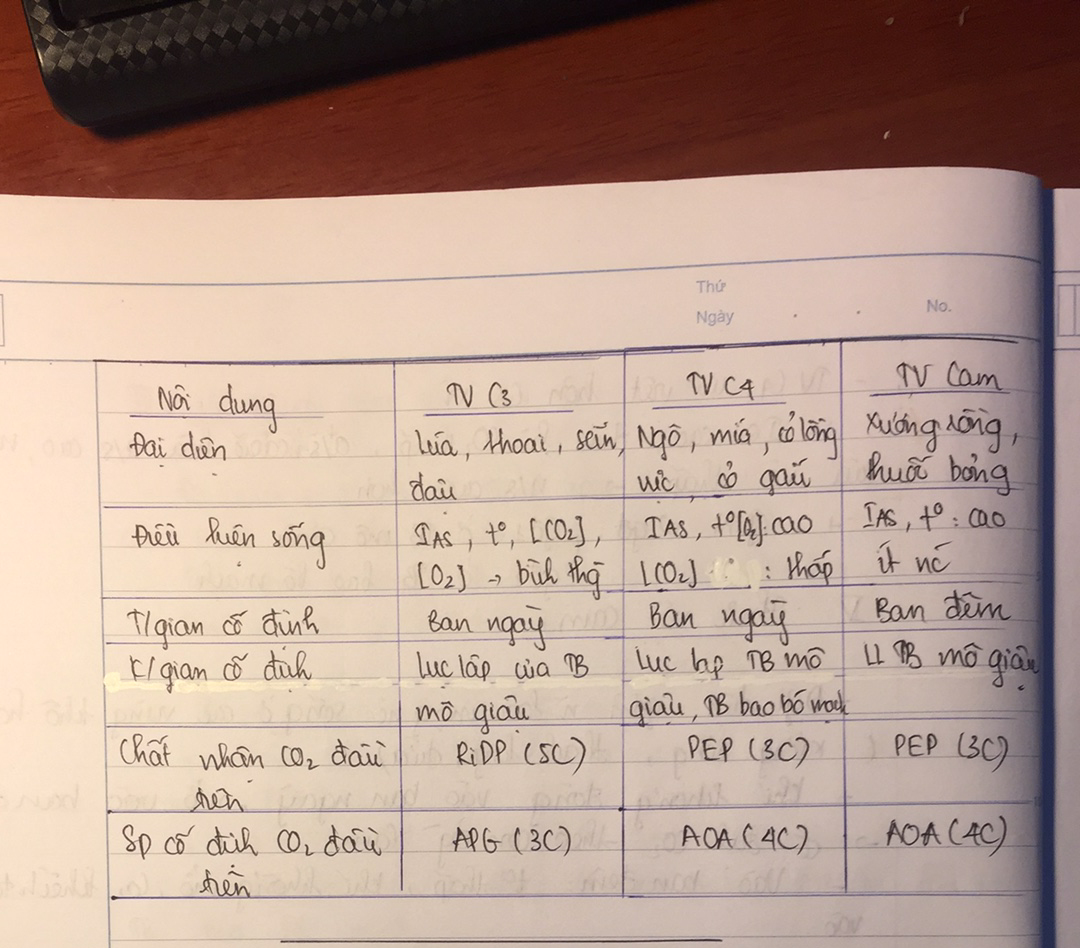 Thứ
Ngày
No.
Nội dung TV C3 TV C4 TV Cam
Đại diện lúa, khoai, sắn, Ngô, mía, cỏ lồng Xương rồng,
đậu vực, cỏ gấu thuốc bỏng
Điều kiện sống IAS, t°, [CO2], IAS, t°[O2]: cao IAS, t°: cao
[O2] → bình thg [CO2] : thấp ít nc
T/gian cố định Ban ngày Ban ngày Ban đêm
K/gian cố định Lục lạp của TB Lục lạp TB mô LL TB mô giậu
mô giậu giậu, TB bao bó mạch
Chất nhận CO2 đầu RiDP (5C) PEP (3C) PEP (3C)
tiên
Sp cố định CO2 đầu APG (3C) AOA (4C) AOA (4C)
tiên